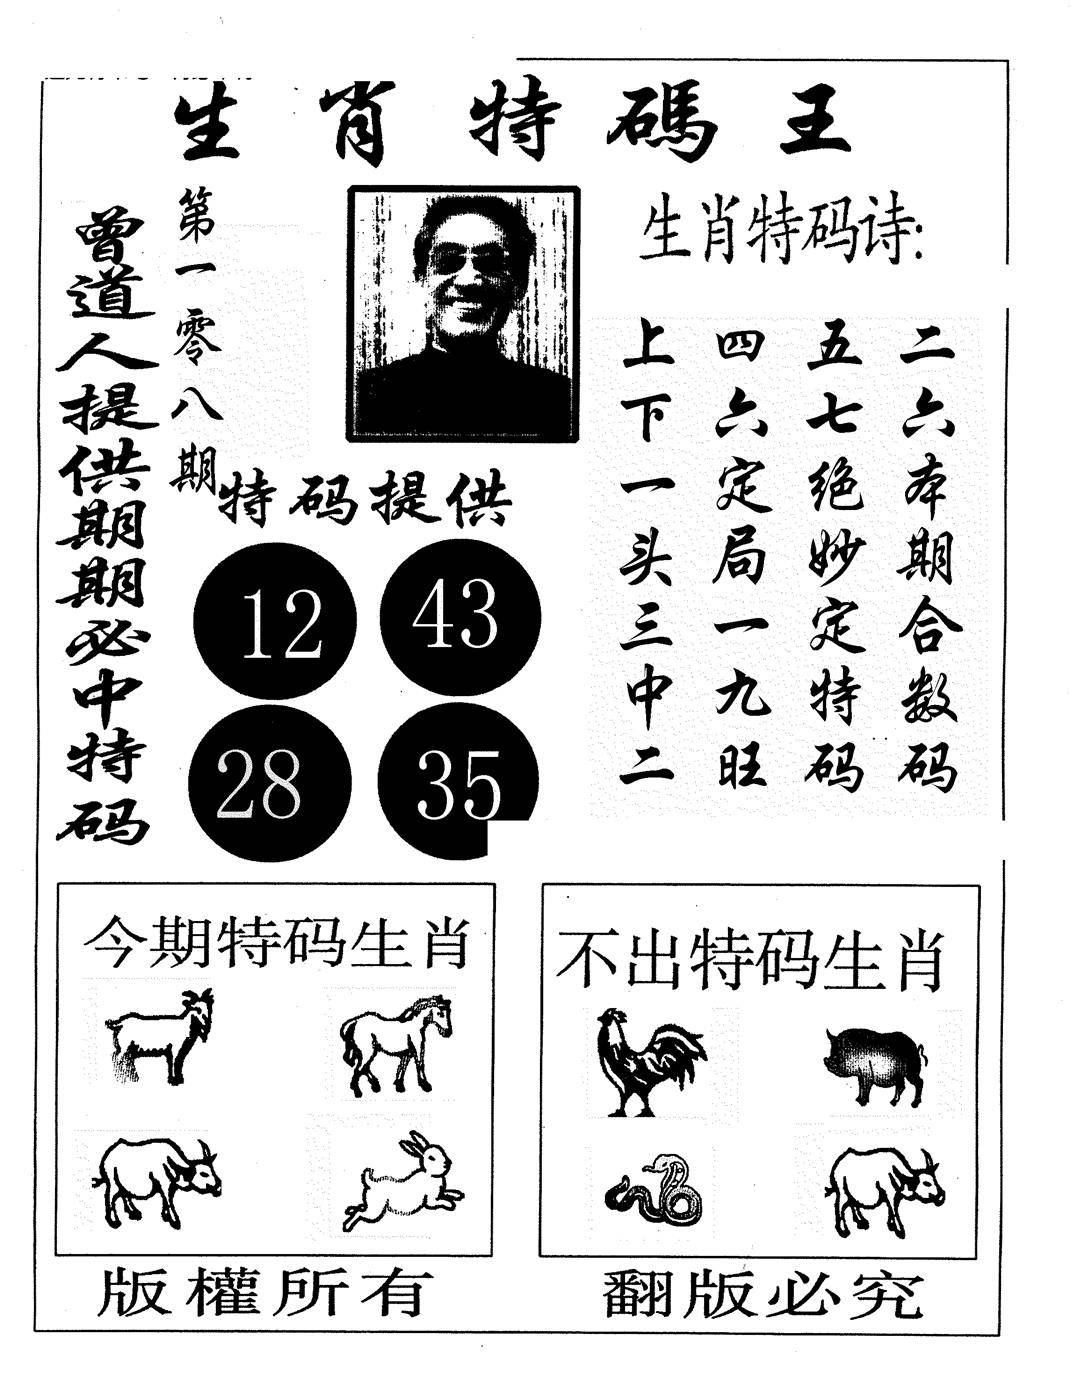 生肖特碼王
第一零八期
曾道人提供期期必中特码
生肖特码诗:
二六本期合数码
五七绝妙定特码
四六定局一九旺
上下一头三中二
特码提供
12 43
28 35
今期特码生肖
不出特码生肖
版權所有
翻版必究